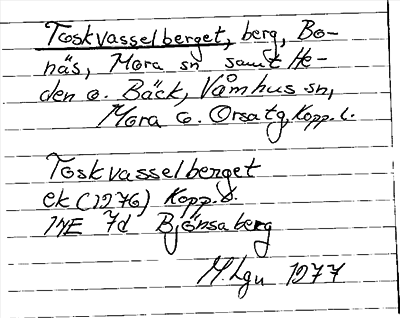 Toskvasselberget, berg, Bo-
näs, Mora sn samt He-
den o. Bäck, Våmhus sn,
Mora o. Orsa tg, Kopp. l.
Toskvasselberget
ek (1976) Kopp. l.
14E 7d Björnsaberg
M. Lgn 1977